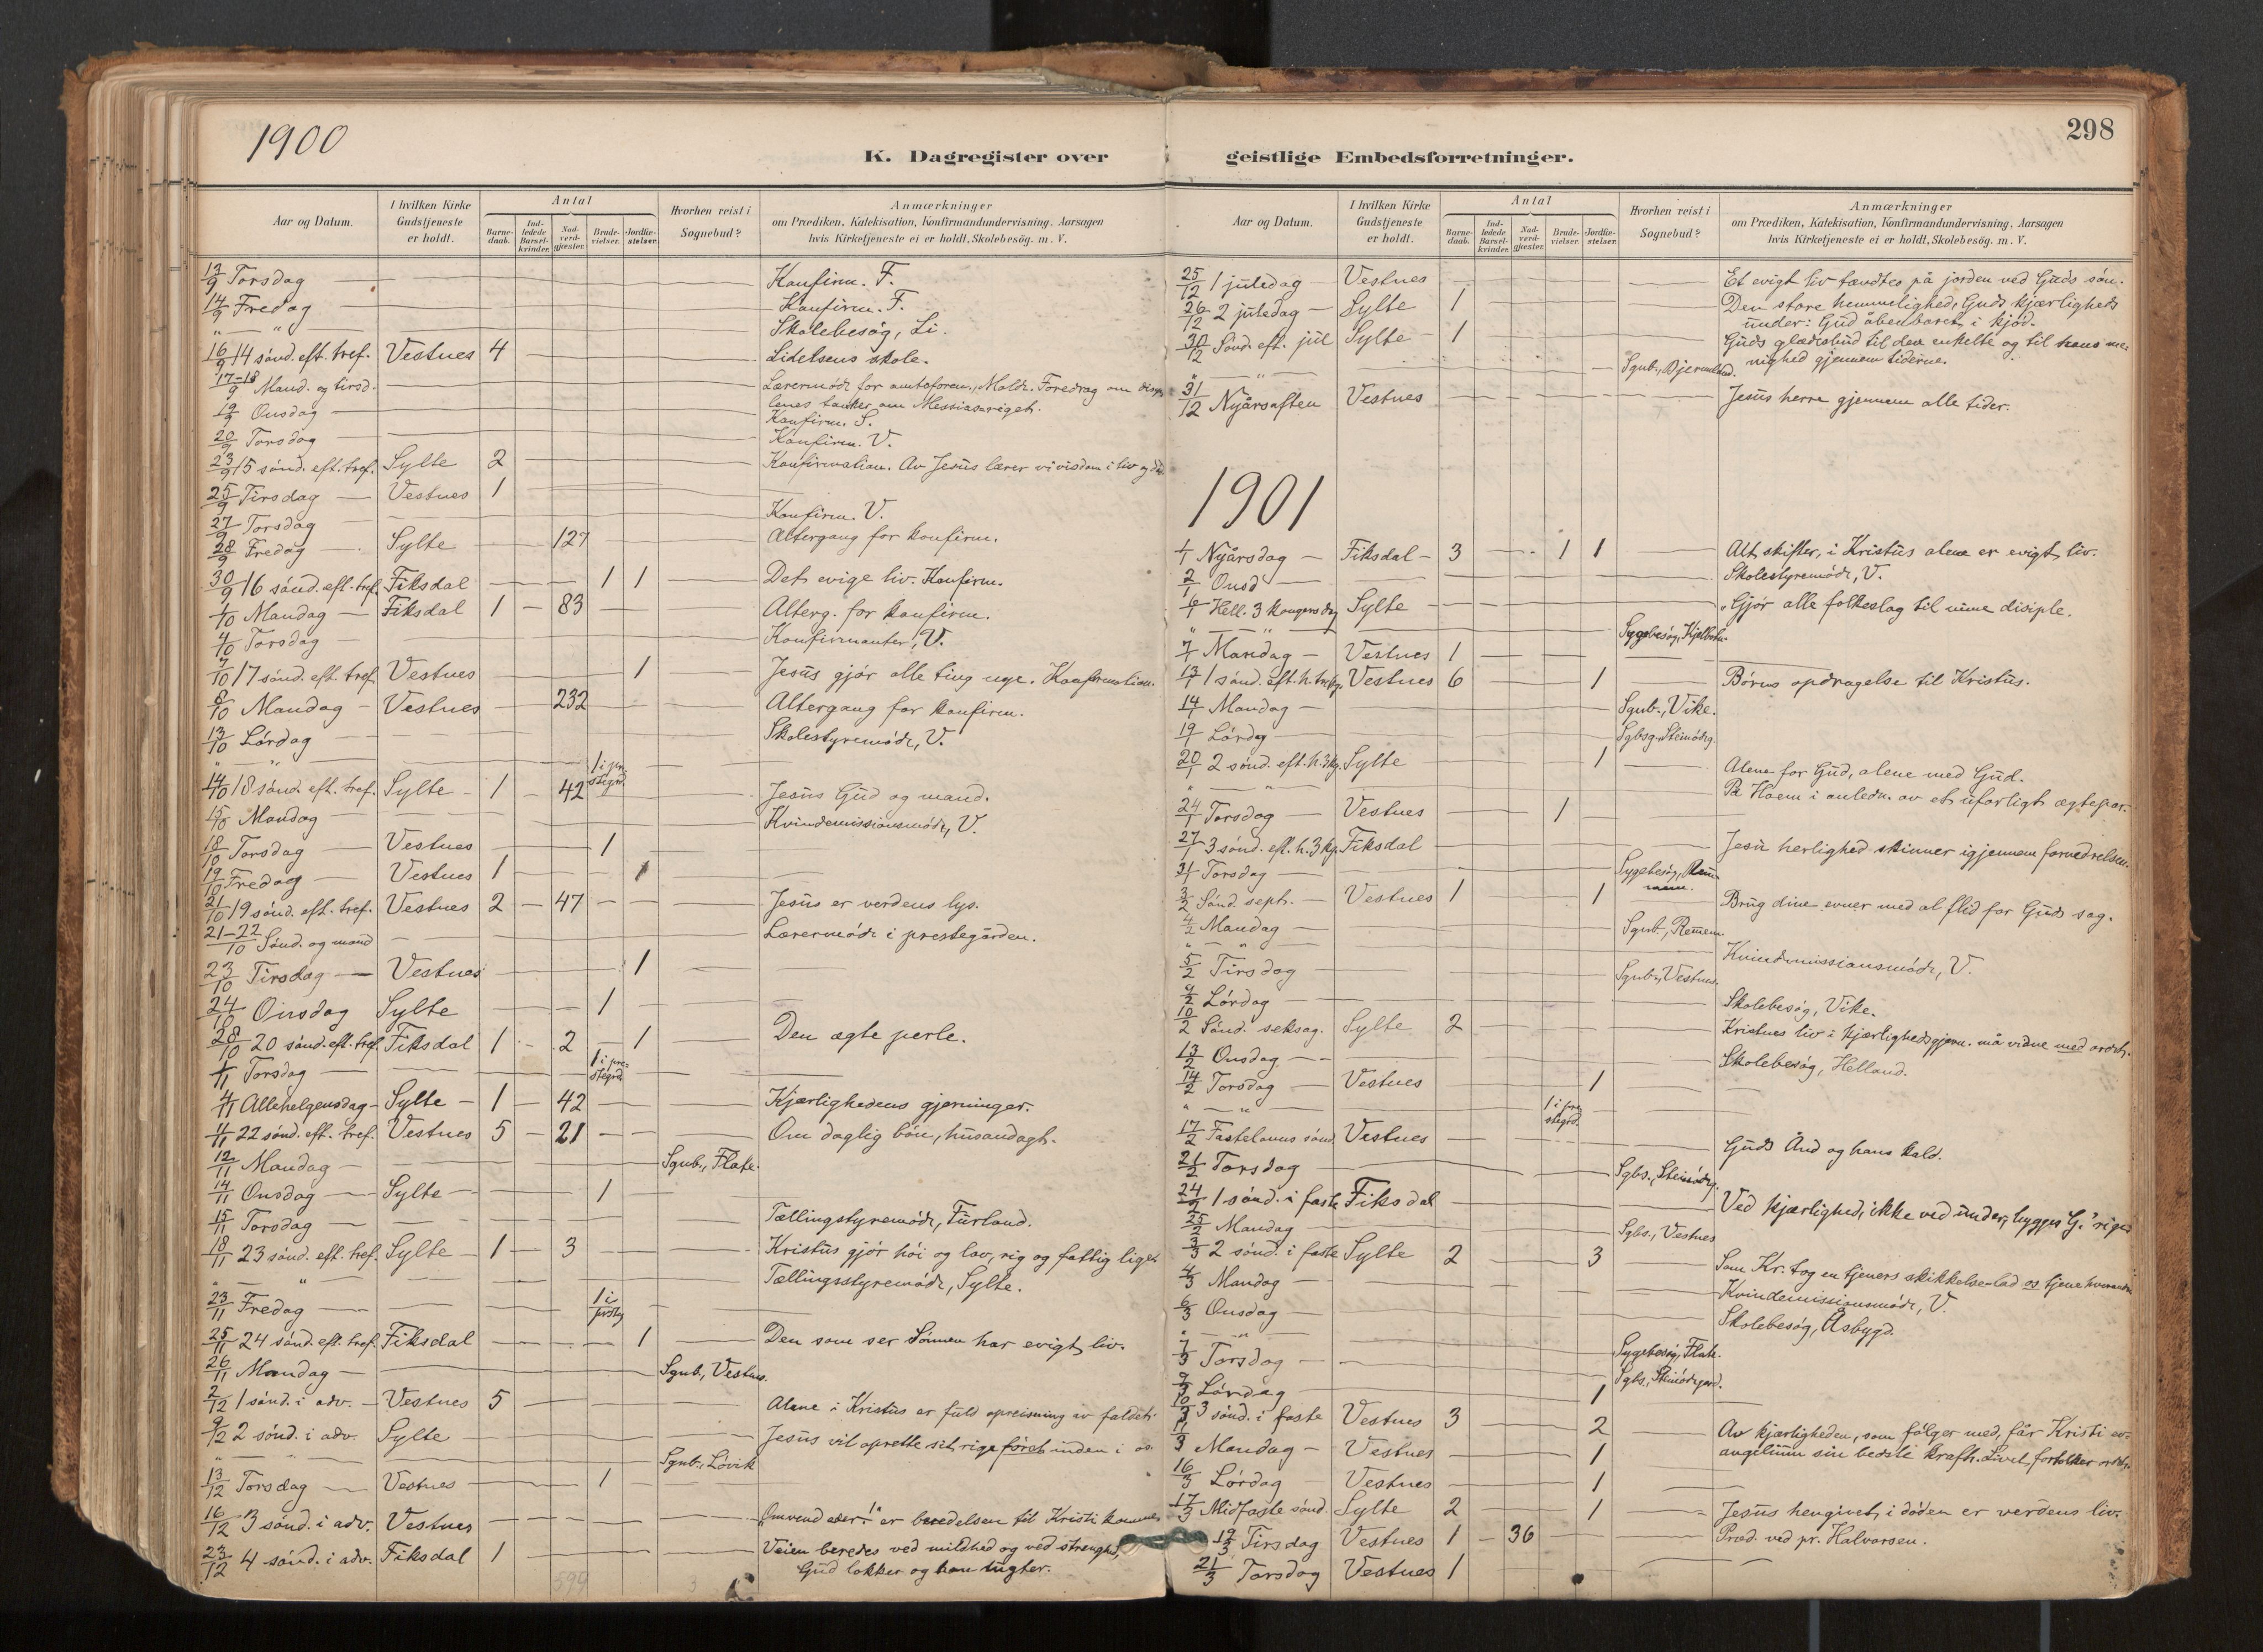 1900
K. Dagregister over
Aar og Datum.
I hvilken Kirke Gudstjeneste er holdt.
Antal
Barnedaab.
Indledede Barselkvinder.
Nadverdgjester.
Brudevielser.
Jordfæstelser.
Hvorhen reist i Sognebud?
Anmærkninger
om Prædiken, Katekisation, Konfirmandundervisning, Aarsagen
hvis Kirketjeneste ei er holdt, Skolebesøg. m. V.
13/9 Torsdag — Konfirm. F.
14/9 Fredag — Konfirm. F.
" — " — Skolebesøg, Li.
16/9 14 sønd. eft. tref. Vestnes 4 — Lidelsens skole.
17-18/9 Mand. og tirsd. — Lærermøde for amtsforen., Molde. Foredrag om
lenes tanker om Messiasriget.
19/9 Onsdag — Konfirm. S.
20/9 Torsdag — Konfirm. V.
23/9 15 sønd. eft. tref. Sylte 2 — Konfirmation. Av Jesus lærer vi visdom i liv og
25/9 Tirsdag — Vestnes 1
27/9 Torsdag — Konfirm. V.
28/9 Fredag — Sylte 127 Altergang for konfirm.
30/9 16 sønd. eft. tref. Fiksdal — 1 1 — Det evige liv. Konfirm.
1/10 Mandag — Fiksdal 1 — 83 — Alterg. for konfirm.
4/10 Torsdag — Konfirmanter, V.
7/10 17 sønd. eft. tref. Vestnes — 1 — Jesus gjør alle ting nye. Konfirmation.
8/10 Mandag — Vestnes — 232 — Altergang for konfirm.
13/10 Lørdag — Skolestyremøde, V.
" — " — 1 i prestegrd.
14/10 18 sønd. eft. tref. Sylte — 1 — 42 — Jesus Gud og mand.
15/10 Mandag — Kvindemissionsmøde, V.
18/10 Torsdag — Vestnes — 1
19/10 Fredag — Vestnes 1 — 1
21/10 19 sønd. eft. tref. Vestnes 2 — 47 — Jesus er verdens lys.
21-22/10 Sønd. og mand — Lærermøde i prestegården.
23/10 Tirsdag — Vestnes — 1
24/10 Onsdag Sylte — 1 —
28/10 20 sønd. eft. tref. Fiksdal 1 — 2 — 1 — Den ægte perle.
1/11 Torsdag — 1 i prestegrd
4/11 Allehelgensdag — Sylte — 1 — 42 — Kjærlighedens gjerninger.
11/11 22 sønd. eft. tref. Vestnes 5 — 21 — Om daglig bøn, husandagt.
12/11 Mandag — Sgnb., Flate.
14/11 Onsdag — Sylte — 1
15/11 Torsdag — Tællingstyremøde, Furland.
18/11 23 sønd. eft. tref. Sylte — 1 — 3 — Kristus gjør høi og lav, rig og fattig lige.
" — " — Tællingsstyremøde, Sylte.
23/11 Fredag — 1 i prstg
25/11 24 sønd. eft. tref. Fiksdal — 1 — Den som ser Sønnen har evigt liv.
26/11 Mandag — Sgnb., Vestnes.
2/12 1 sønd. i adv. — Vestnes 5 — Alene i Kristus er fuld opreisning av faldet.
9/12 2 sønd. i adv. Sylte — Jesus vil oprette sit rige først inden i os.
" — " — Sgnb., Løvik
13/12 Torsdag — Vestnes — 1
16/12 3 sønd. i adv. Vestnes — "Omvend eder!" er beredelsen til Kristi komme
23/12 4 sønd. i adv. Fiksdal 1 — Veien beredes ved mildhed og ved strenghed,
Gud lokker og han tugter.
599 3
298
geistlige Embedsforretninger.
Aar og Datum.
I hvilken Kirke Gudstjeneste er holdt.
Antal
Barnedaab.
Indledede Barselkvinder.
Nadverdgjester.
Brudevielser.
Jordfæstelser.
Hvorhen reist i Sognebud?
Anmærkninger
om Prædiken, Katekisation, Konfirmandundervisning, Aarsagen
hvis Kirketjeneste ei er holdt, Skolebesøg. m. V.
25/12 1 juledag — Vestnes — Et evigt liv tændtes på jorden ved Guds søn.
26/12 2 juledag — Sylte 1 — Den store hemmelighed, Guds kjærligheds
under: Gud åbenbaret i kjød.
30/12 Sønd. eft. jul Sylte 1 — Guds glædesbud til den enkelte og til hans me-
nighed gjennem tiderne.
" — " — Sgnb.,
31/12 Nyårsaften Vestnes — Jesus herre gjennem alle tider.
1901
1/1 Nyårsdag — Fiksdal — 3 — 1 1 — Alt skifter, i Kristus alene er evigt liv.
2/1 Onsd — Skolestyremøde, V.
6/1 Hell. 3 kongers dg Sylte — "Gjør alle folkeslag til mine disiple.
" — " — Sygebesøg,
7/1 Mandag — Vestnes 1
13/1 1 sønd. eft. h. Vestnes 6 — 1 — Børns opdragelse til Kristus.
14/1 Mandag — Sgnb., Vike.
19/1 Lørdag — Sgbsg.
20/1 2 sønd. eft. h. 3 kg. Sylte — 1 — Alene for Gud, alene med Gud.
" — " — På Hoem i anledn. av et uforligt ægtepar.
24/1 Torsdag — Vestnes — 1
27/1 3 sønd. eft. h. 3 kg. Fiksdal — Jesu herlighed skinner igjennem fornedrelsen.
31/1 Torsdag — Sygebesøg,
3/2 Sønd. sept. — Vestnes 1 — 1 — Brug dine evner med al flid for Guds sag.
4/2 Mandag — Sgnb., Remem.
" — " — Kvindemissionsmøde, V.
5/2 Tirsdag — Sgnb., Vestnes.
9/2 Lørdag — Skolebesøg, Vike.
10/2 Sønd. seksag. Sylte 2 — Kristnes liv i kjærlighedsgjern. må vidne med ordet.
13/2 Onsdag — Skolebesøg, Helland.
14/2 Torsdag — Vestnes — 1
" — " — 1 i prestegrd.
17/2 Fastelavns sønd. Vestnes — Guds Ånd og hans kald.
21/2 Torsdag — Sgbs.,
24/2 1 sønd. i faste Fiksdal — Ved kjærlighed, ikke ved under, bygges G.'s rige
25/2 Mandag — Sgbs., Vestnes
3/3 2 sønd. i faste Sylte 2 — 3 — Som Kr. tog en tjeners skikkelse — lad os tjene hverandre
4/3 Mandag — Kvindemissionsmøde, V.
6/3 Onsdag — Skolebesøg, Åsbygd.
" — " — Sygebesøg, Flate.
7/3 Torsdag — Sgbs.,
9/3 Lørdag — 1
10/3 3 sønd. i faste Vestnes 3 — 2 — Av kjærligheden, som følger med, får Kristi ev-
angelium sin bedste kraft. Livet fortolker ordet.
11/3 Mandag — Vestnes — 1
16/3 Lørdag — Vestnes — 1
17/3 Midfaste sønd. Sylte 2 — 1 — Jesus hengivet i døden er verdens liv.
19/3 Tirsdag Vestnes 1 — 36 — Præd. ved pr. Halvorsen.
21/3 Torsdag Vestnes 1